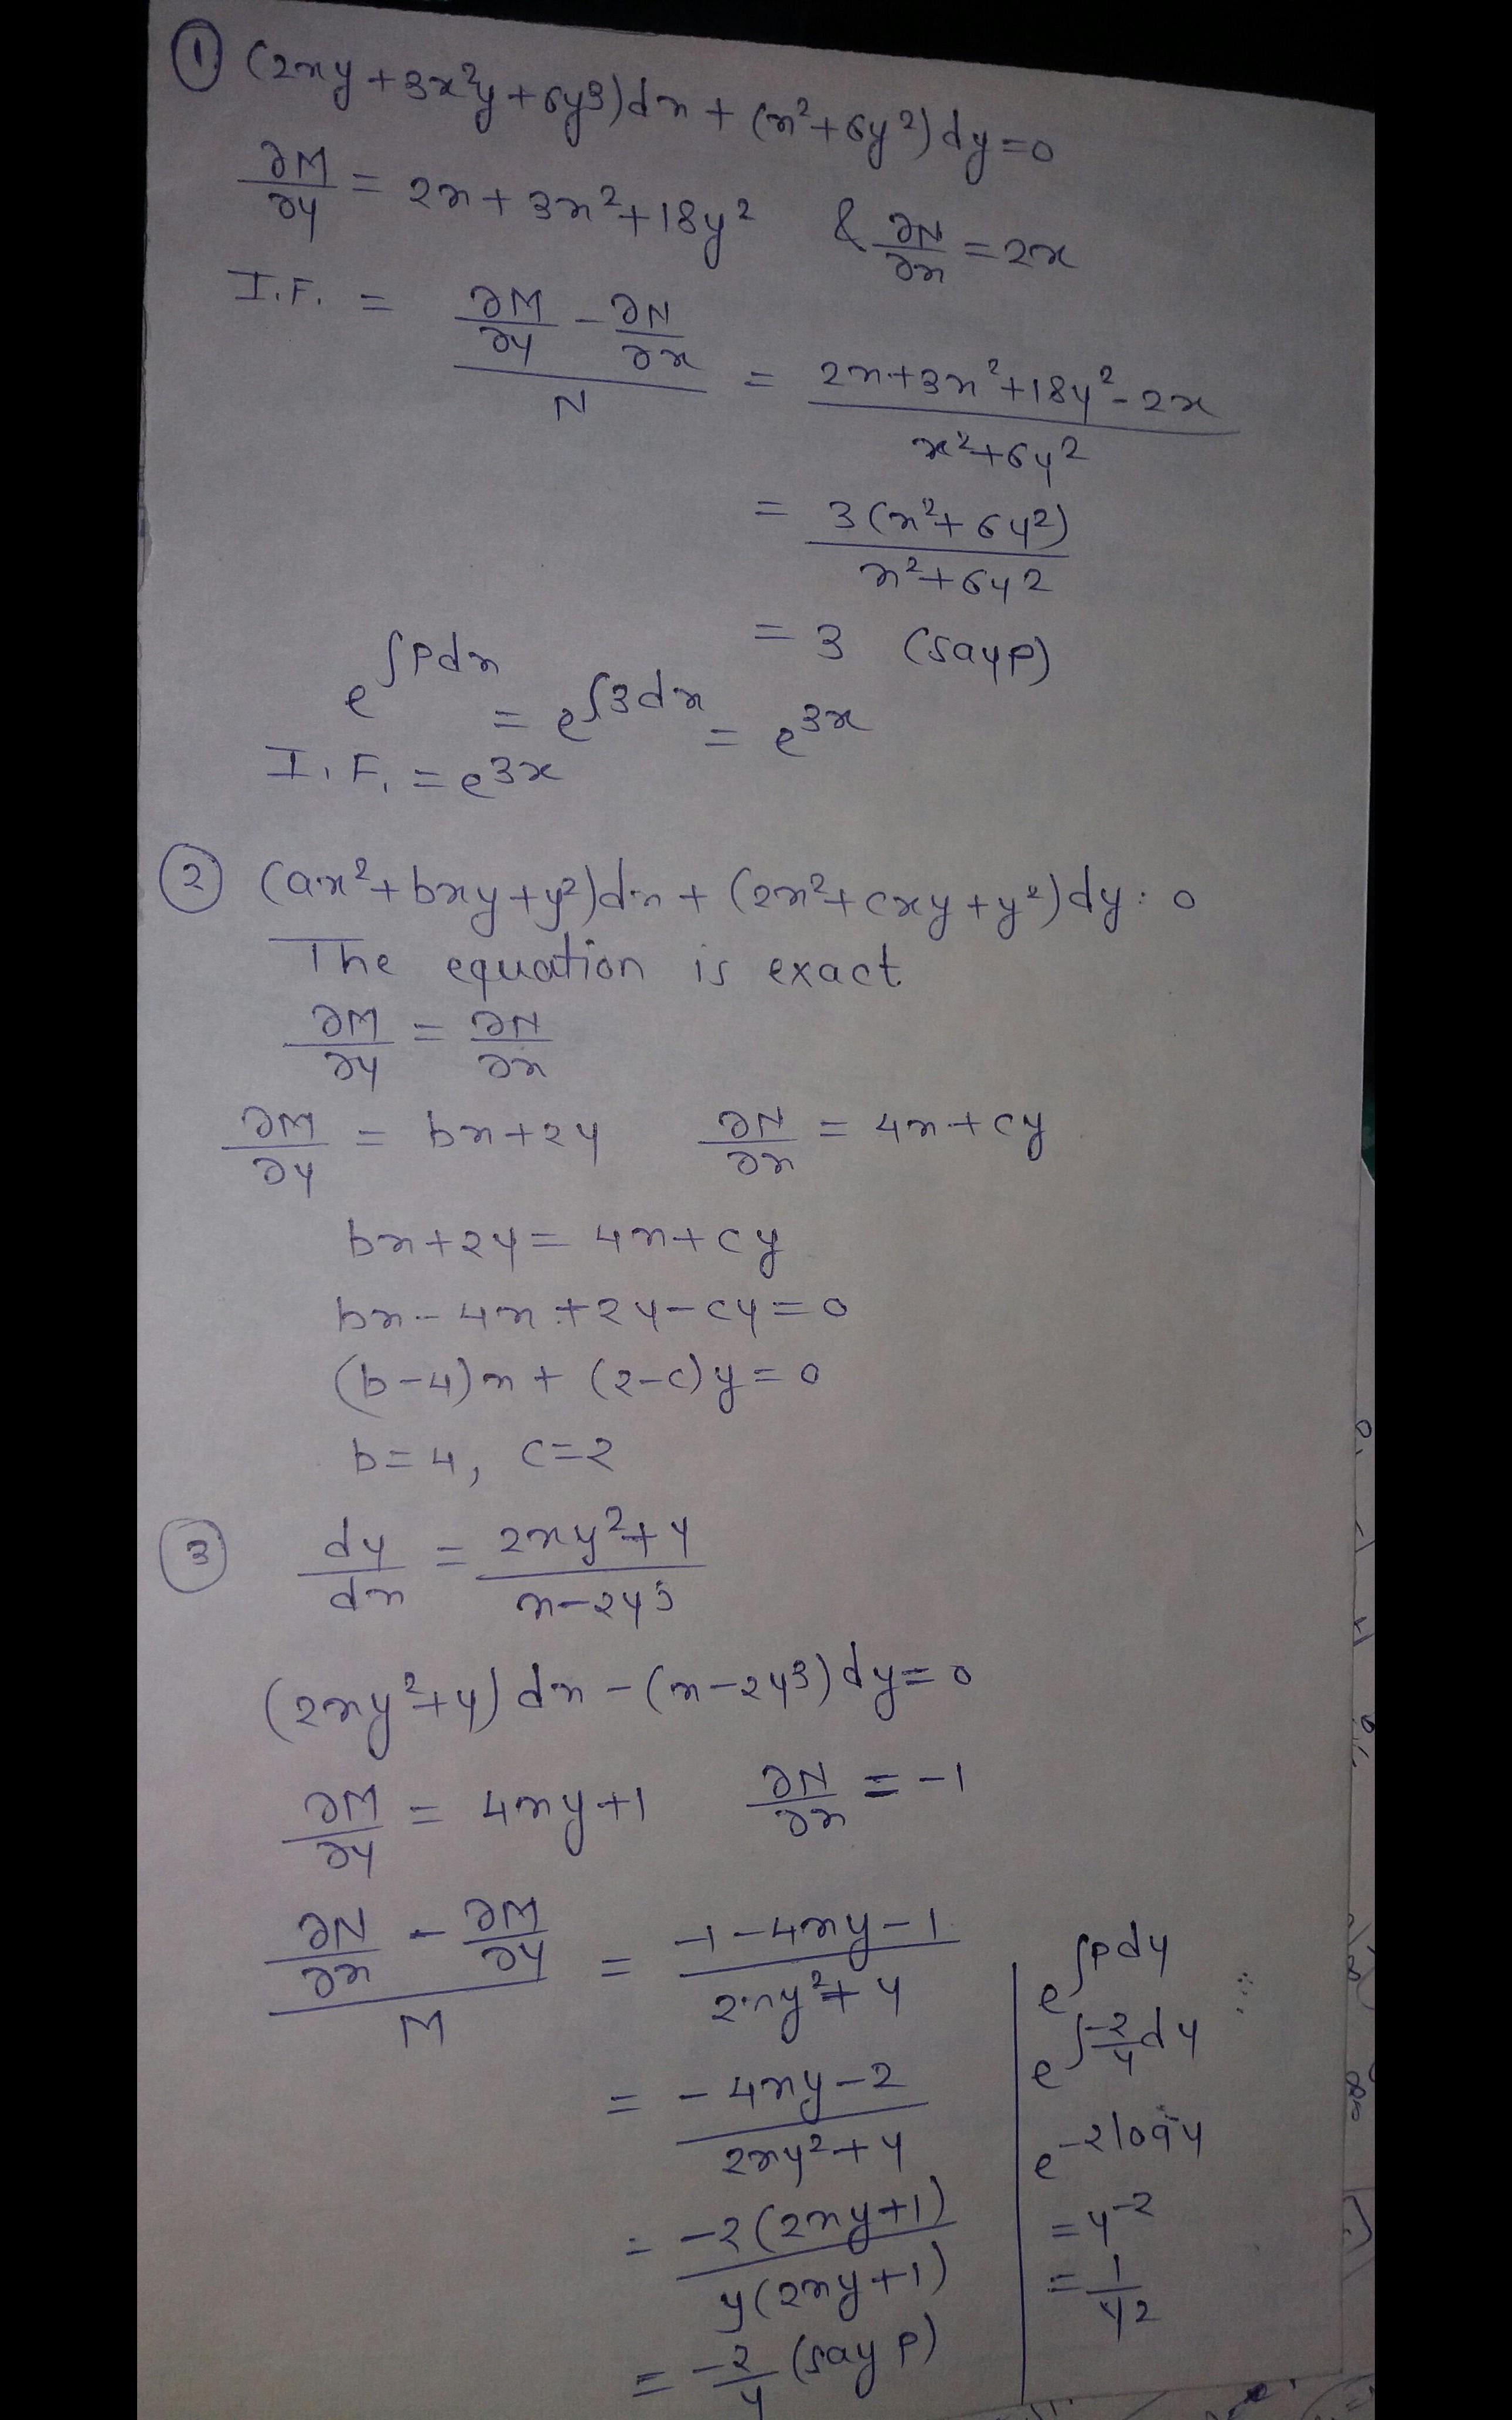 ① (2xy+3x²y+6y³)dx + (x²+6y²)dy=0
∂M/∂y = 2x+3x²+18y² & ∂N/∂x = 2x
I.F. = (∂M/∂y - ∂N/∂x)/N = (2x+3x²+18y²-2x)/(x²+6y²)
= 3(x²+6y²)/(x²+6y²)
= 3 (say P)
e^∫Pdx = e^∫3dx = e^3x
I.F. = e^3x
② (ax²+bxy+y²)dx + (2x²+cxy+y²)dy = 0
The equation is exact
∂M/∂y = ∂N/∂x
∂M/∂y = bx+2y ∂N/∂x = 4x+cy
bx+2y = 4x+cy
bx-4x+2y-cy=0
(b-4)x + (2-c)y=0
b=4, c=2
③ dy/dx = (2xy²+y)/(x-2y³)
(2xy²+y)dx - (x-2y³)dy=0
∂M/∂y = 4xy+1 ∂N/∂x = -1
(∂N/∂x - ∂M/∂y)/M = (-1-4xy-1)/(2xy²+y)
= (-4xy-2)/(2xy²+y)
= -2(2xy+1)/y(2xy+1)
= -2/y (say P)
e^∫Pdy
e^∫-2/y dy
e^-2logy
= y^-2
= 1/y²